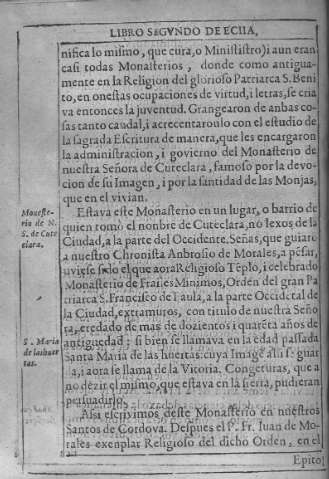 LIBRO SEGVNDO DE ECIIA,
nifica lo mismo, que cura, o Ministro) i aun eran
casi todas Monasterios, donde como antigua-
mente en la Religion del glorioso Patriarca S. Beni
to, en onestas ocupaciones de virtud, i letras, se cria
va entonces la juventud. Grangearon de anbas co-
sas tanto caudal, i acrecentaronlo con el estudio de
la sagrada Escritura de manera, que les encargaron
la administracion, i govierno del Monasterio de
nuestra Señora de Cuteclara, famoso por la devo-
cion de su Imagen, i por la santidad de las Monjas,
que en el vivian.
Moneste-
rio de N.
S. de Cute
clara.
Estava este Monasterio en un lugar, o barrio de
quien tomò el nonbre de Cuteclara, no lexos de la
Ciudad, a la parte del Occidente. Señas, que guiarō
a nuestro Chronista Anbrosio de Morales, a pēsar,
uviesse sido el que aora Religioso Tēplo, i celebrado
Monasterio de Frailes Minimos, Orden del gran Pa
triarca S. Francisco de Paula, a la parte Occidētal de
la Ciudad, extramuros, con titulo de nuestra Seño
ra, eredado de mas de dozientos i quarēta años de
antiguedad; si bien se llamava en la edad passada
S. Maria
de las huer
tas.
Santa Maria de las huertas: cuya Imagē alli se guar
da, i aora se llama de la Vitoria. Congeturas, que a
no dezir el mismo, que estava en la sierra, pudieran
persuadirlo.
Assi escrivimos deste Monasterio en nuestros
Santos de Cordova. Despues el P. Fr. Iuan de Mo-
rales exenplar Religioso del dicho Orden, en el
Epito